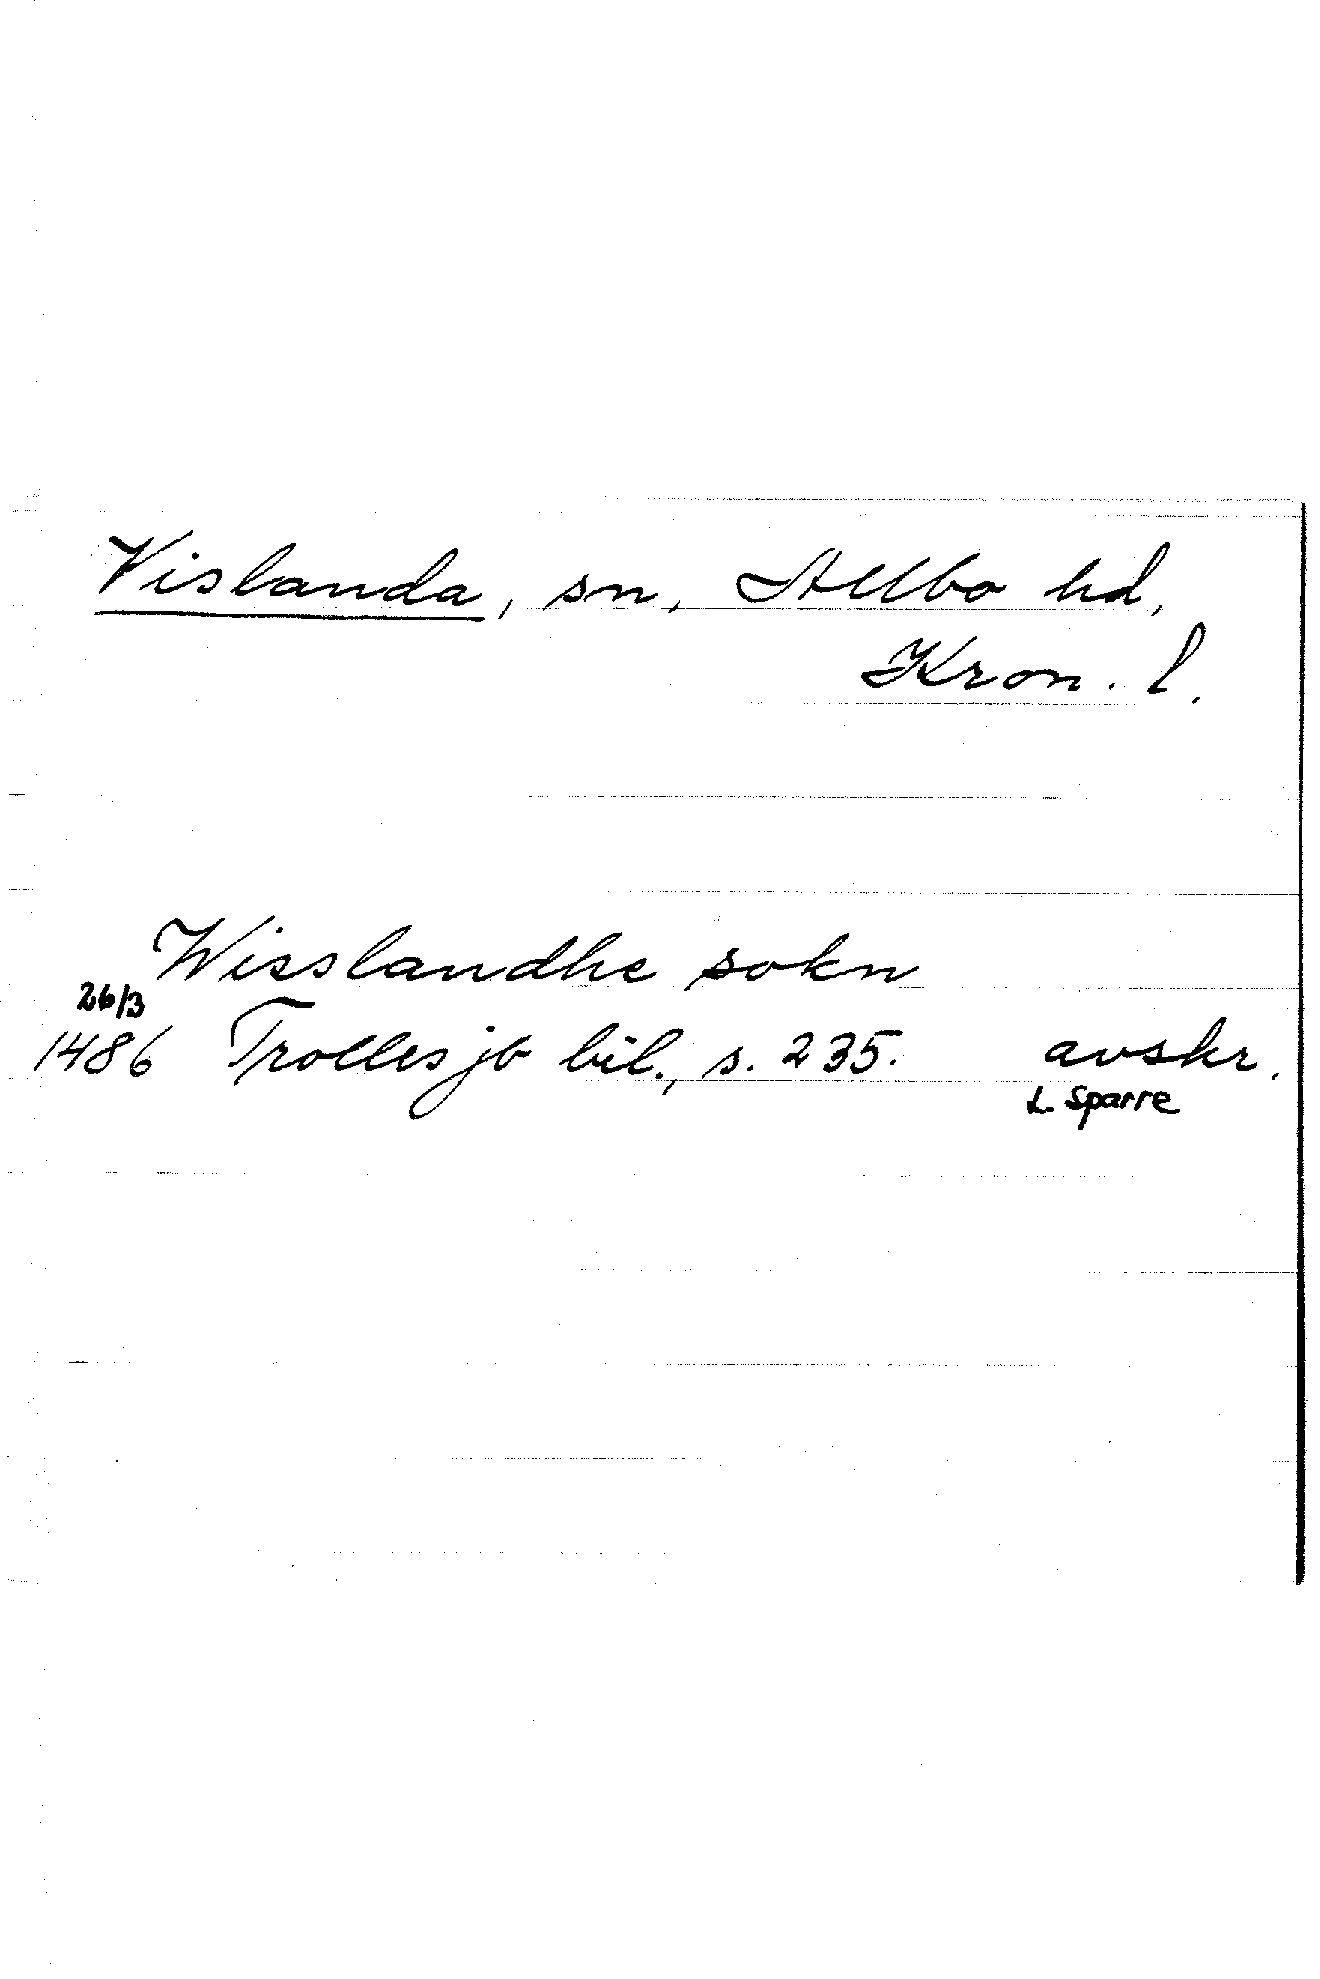 Vislanda, sn, Allbo hd,
Kron. l.
Wisslandhe sokn
26/3
1486 Trolles jb bil., s. 235. avskr.
L. Sparre